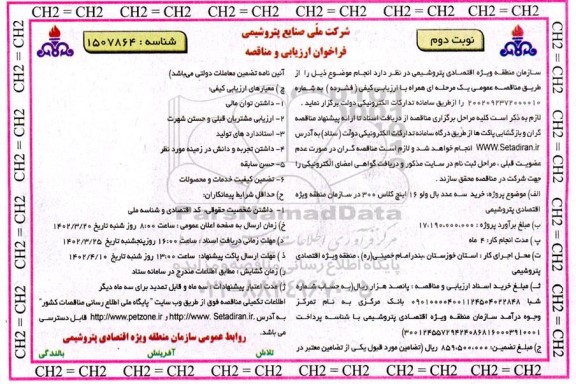 CH2 = CH2 CH2 = CH2 CH2 = CH2 CH2 = CH2 CH2 = CH2 CH2 = CH2 CH2 = CH2
نوبت دوم
شرکت ملی صنایع پتروشیمی
فراخوان ارزیابی و مناقصه
شناسه : ۱۵۰۷۸۶۴
سازمان منطقه ویژه اقتصادی پتروشیمی در نظر دارد انجام موضوع ذیل را از
طریق مناقصه عمومی یک مرحله ای همراه با ارزیابی کیفی (فشرده) به شماره
۲۰۰۲۰۹۲۳۷۲۰۰۰۰۱۰ را از طریق سامانه تدارکات الکترونیکی دولت برگزار نماید .
لازم به ذکر است کلیه مراحل برگزاری مناقصه از دریافت اسناد تا ارائه پیشنهاد مناقصه
گران و بازگشایی پاکت ها از طریق درگاه سامانه تدارکات الکترونیکی دولت (ستاد) به آدرس
WWW.Setadiran.ir انجام خواهد شد و لازم است مناقصه گران در صورت عدم
عضویت قبلی ، مراحل ثبت نام در سایت مذکور و دریافت گواهی امضای الکترونیکی را
جهت شرکت در مناقصه محقق سازند .
الف) موضوع پروژه: خرید سه عدد بال ولو ۱۶ اینچ کلاس ۳۰۰ در سازمان منطقه ویژه
اقتصادی پتروشیمی
ب) مبلغ برآورد پروژه : ۱۷.۱۹۰.۰۰۰.۰۰۰
پ) مدت انجام کار: ۴ ماه
ت) محل اجرای کار : استان خوزستان ،بندر امام خمینی(ره)، منطقه ویژه اقتصادی
پتروشیمی
ث) مبلغ خرید اسناد ارزیابی و مناقصه : پانصد هزار ریال(به حساب شماره
شبا بانک مرکزی به نام تمرکز
وجوه درآمد سازمان منطقه ویژه اقتصادی پتروشیمی با شناسه پرداخت
ج) مبلغ تضمین: ۸۵۹.۵۰۰.۰۰۰ ریال (تضامین مورد قبول یکی از تضامین معتبر در
آئین نامه تضمین معاملات دولتی می‌باشد)
چ) معیارهای ارزیابی کیفی:
۱- داشتن توان مالی
۲- ارزیابی مشتریان قبلی و حسن شهرت
۳- استاندارد های تولید
۴- داشتن تجربه و دانش در زمینه مورد نظر
۵- حسن سابقه
۶- تضمین کیفیت خدمات و محصولات
ح) حداقل شرایط پیمانکاران:
۱- داشتن شخصیت حقوقی، کد اقتصادی و شناسه ملی
خ) زمان ارسال به صفحه اعلان عمومی : ساعت ۸:۰۰ روز شنبه تاریخ ۱۴۰۲/۳/۲۰
د) مهلت زمانی دریافت اسناد : ساعت ۱۶:۰۰ روز پنجشنبه تاریخ ۱۴۰۲/۳/۲۵
ذ) مهلت ارسال پاکت پیشنهاد: ساعت ۱۳:۰۰ روز شنبه تاریخ ۱۴۰۲/۴/۱۰
ر) زمان گشایش : مطابق اطلاعات مندرج در سامانه ستاد
ز) مدت اعتبار پیشنهادات : سه ماه و قابل تمدید برای سه ماه دیگر
اطلاعات تکمیلی مناقصه فوق از طریق وب سایت "پایگاه ملی اطلاع رسانی مناقصات کشور"
به آدرس http://www. Setadiran.ir و http://www.petzone.ir قابل دسترسی
می باشد.
روابط عمومی سازمان منطقه ویژه اقتصادی پتروشیمی
تلاش آفرینش بالندگی
CH2 = CH2 CH2 = CH2 CH2 = CH2 CH2 = CH2 CH2 = CH2 CH2 = CH2